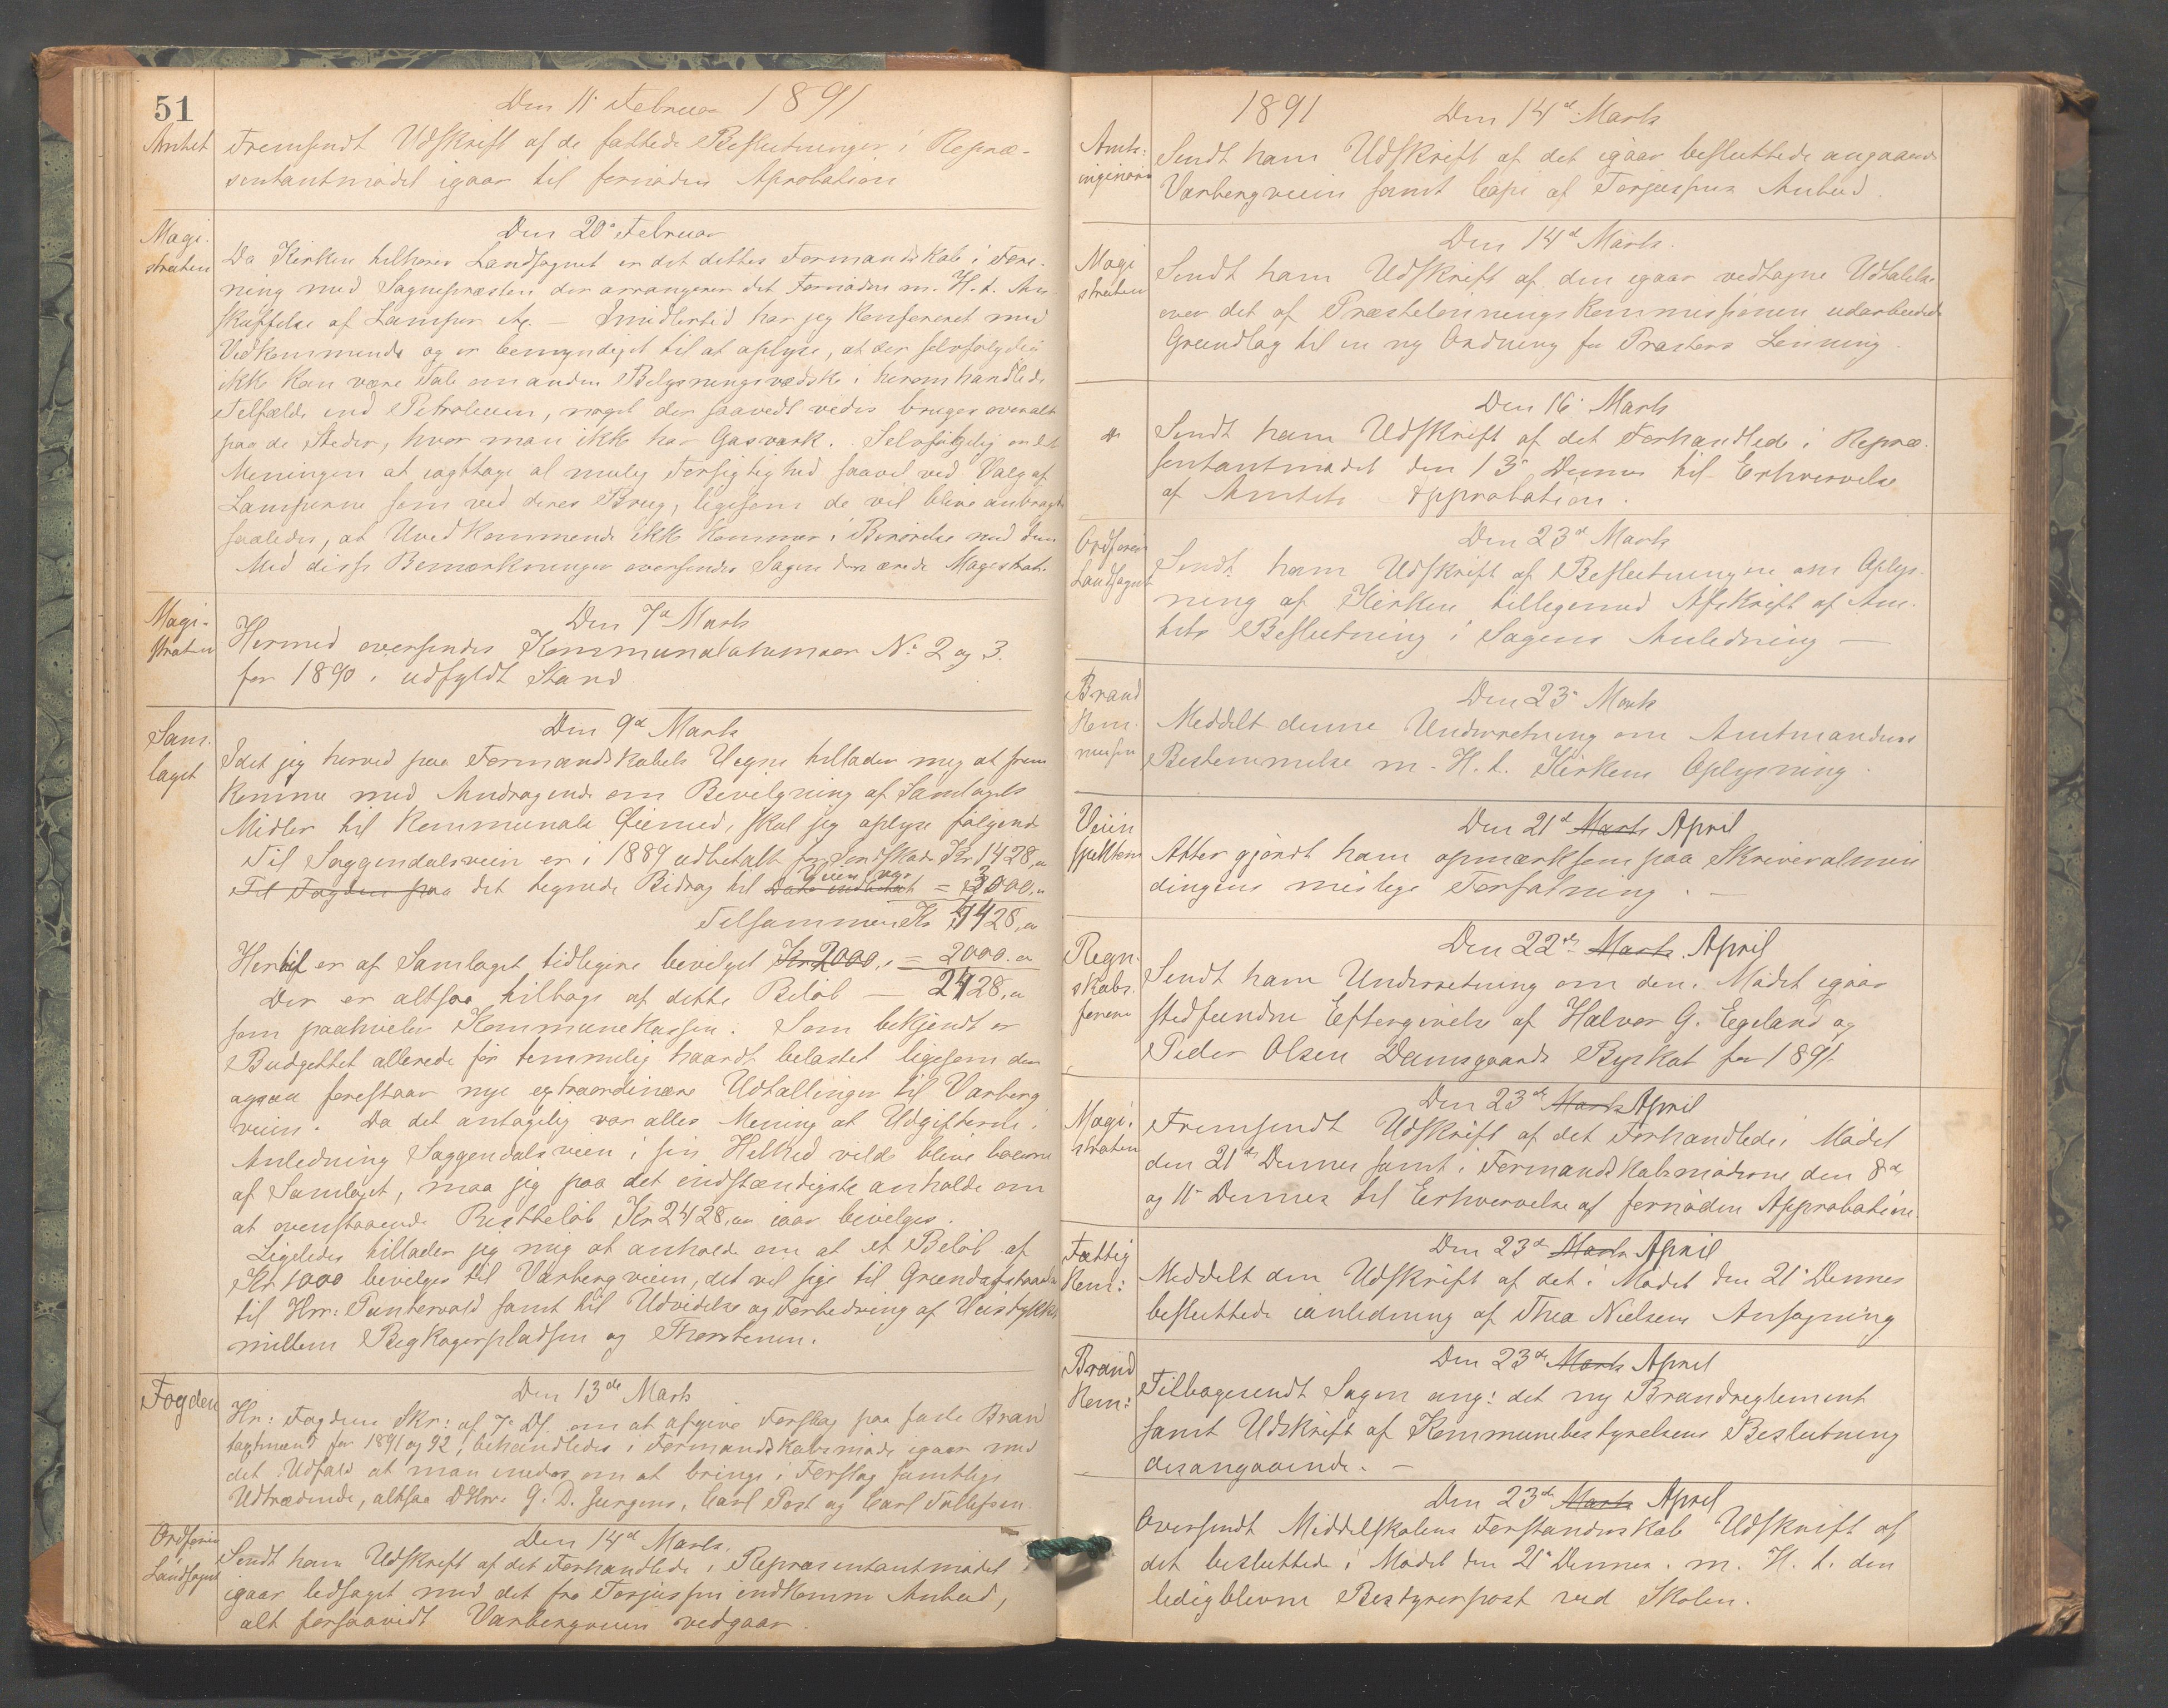 51
Den 11' Februar 1891
Amtet Fremsendt Udskrift af de fattede Beslutninger i Repræ-
sentantmødet igaar til fornøden Aprobation
Den 20' Februar
Magi-
straten
Da Kirken tilhører Landsognet er det dettes Formandskab i Fore-
ning med Sognepræsten der arrangerer det Fornødne m. H. t. An-
skaffelse af Lamper etc. — Imidlertid har jeg Konfereret med
Vedkommende og er bemyndiget til at oplyse, at der selvfølgelig
ikke kan være Tale om anden Belysningsvædske i heromhandlede
Tilfælde end Petroleum, noget der saavidt vides bruges overalt
paa de Steder, hvor man ikke har Gasværk. Selvfølgelig er det
Meningen at iagttage al mulig Forsigtighed saavel ved Valg af
Lamperne som ved deres Brug, ligesom de vil blive anbragt
saaledes, at Uvedkommende ikke kommer i Berørelse med dem
Med disse Bemærkninger oversendes Sagen den ærede Magistrat.
Den 7d Marts
Magi-
straten
Hermed oversendes Kommunalskemaer No 2 og 3.
for 1890 i udfyldt Stand
Den 9d Marts
Sam-
laget
Idet jeg herved paa Formandskabets Vegne tillader mig at frem
komme med Andragende om Bevilgning af Samlagets
Midler til Kommunale Øiemed, skal jeg oplyse følgende
Til Soggendalsveien er i 1889 udbetalt for Kr 1428,"
Til Fogden paa det tegnede Bidrag til = 3000,"
Tilsammen Kr 4428,"
Hertil er af Samlaget tidligere bevilget Kr 2000," = 2000."
Der er altsaa tilbage af dette Beløb — 2428,"
som paahviler Kommunekassen. Som bekjendt er
Budgettet allerede før temmelig haardt belastet ligesom der
ogsaa forestaar nye extraordinære Udtællinger til Varberg
veien. Da det antagelig var alles Mening at Udgifterne i
Anledning Soggendalsveien i sin Helhed vilde blive baarne
af Samlaget, maa jeg paa det indstændigste anholde om
at ovenstaaende Restbeløb Kr 2428,00 iaar bevilges.
Ligeledes tillader jeg mig at anholde om at et Beløb af
Kr 1000 bevilges til Varbergveien, det vil sige til
til Hrr: Puntervold samt til Udvidelse og Forbedring af Veistykket
mellem Begkogerpladsen og
Den 13de Marts
Fogden
Hr: Fogdens Skr: af 7' Ds. om at afgive Forslag paa faste Bran
tagtmænd for 1891 og 92, behandledes i Formandskabsmøde igaar med
det Udfald at man enedes om at bringe i Forslag samtlige
Udtrædende, altsaa DHrr: G. D. Jurgens, Carl Post og Carl Tollefsen
Den 14d Marts.
Ordføren
Landsognet
Sendt ham Udskrift af det Forhandlede i Repræsentantmødet
igaar ledsaget med det fra Torjussen indkomne Anbud,
alt forsaavidt Varbergveien vedgaar.
1891 Den 14d Marts
Amts:
inginøren
Sendt ham Udskrift af det igaar besluttede angaaende
Varbergveien samt Copi af Torjussens Anbud.
Den 14d Marts.
Magi
straten
Sendt ham Udskrift af den igaar vedtagne Udtalelse
over det af Præstelønningskommissionen udarbeidede
Grundlag til en ny Ordning for Præsters Lønning.
Den 16' Marts
Sendt ham Udskrift af det Forhandlede i Repræ-
sentantmødet den 13' Dennes til Erhvervelse
af Amtets Approbation.
Den 23d Marts
Ordføren
Landsognet
Sendt ham Udskrift af Beslutningerne om Oplys-
ning af Kirken tilligemed Afskrift af Am-
tets Beslutning i Sagens Anledning —
Den 23' Marts
Brand
Kom-
missionen
Meddelt denne Underretning om Amtmandens
Bestemmelse m. H. t. Kirkens Oplysning.
Den 21d Marts April
Veiin
spektøren
Atter gjordt ham opmærksom paa Skriveralmin
dingens mislige Forfatning. —
Den 22de Marts April
Regn-
skabs-
føreren
Sendt ham Underretning om den i Mødet igaar
stedfundne Eftergivelse af Halvor G. Egeland og
Peder Olsen Damsgaards Byskat for 1891.
Den 23de Marts April
Magi-
straten
Fremsendt Udskrift af det Forhandlede i Mødet
den 21de Dennes samt i Formandskabsmøderne den 8d
og 11' Dennes til Erhvervelse af fornøden Approbation.
Den 23de Marts April
Fattig
Kom:
Meddelt den Udskrift af det i Mødet den 21' Dennes
besluttede ianledning af Thea Nielsens Ansøgning
Den 23de Marts April
Brand
Kom:
Tilbagesendt Sagen ang: det ny Brandreglement
samt Udskrift af Kommunebestyrelsens Beslutning
desangaaende. —
Den 23de Marts April
Oversendt Middelskolens Forstanderskab Udskrift af
det besluttede i Mødet den 21' Dennes. m. H. t. den
ledigblevne Bestyrerpost ved Skolen.